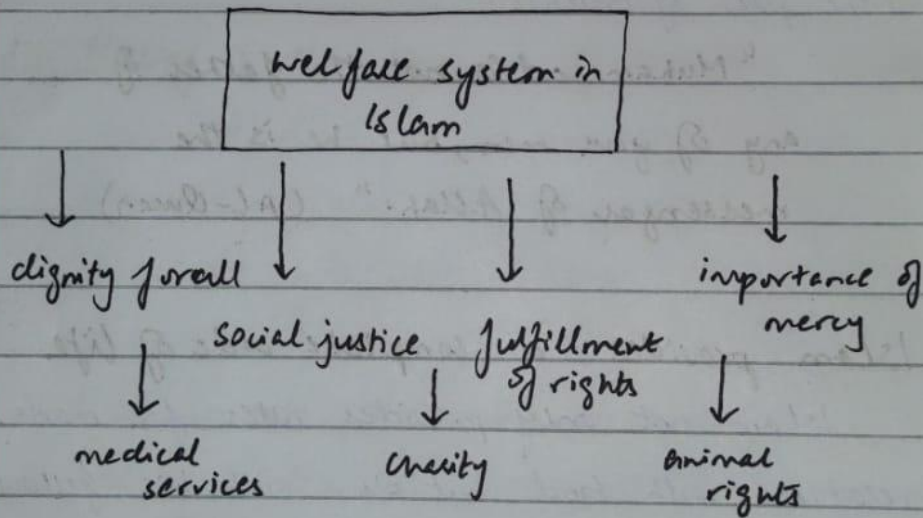 welfare system in
Islam
dignity for all
social justice
fulfillment
of rights
importance of
mercy
medical
services
charity
animal
rights